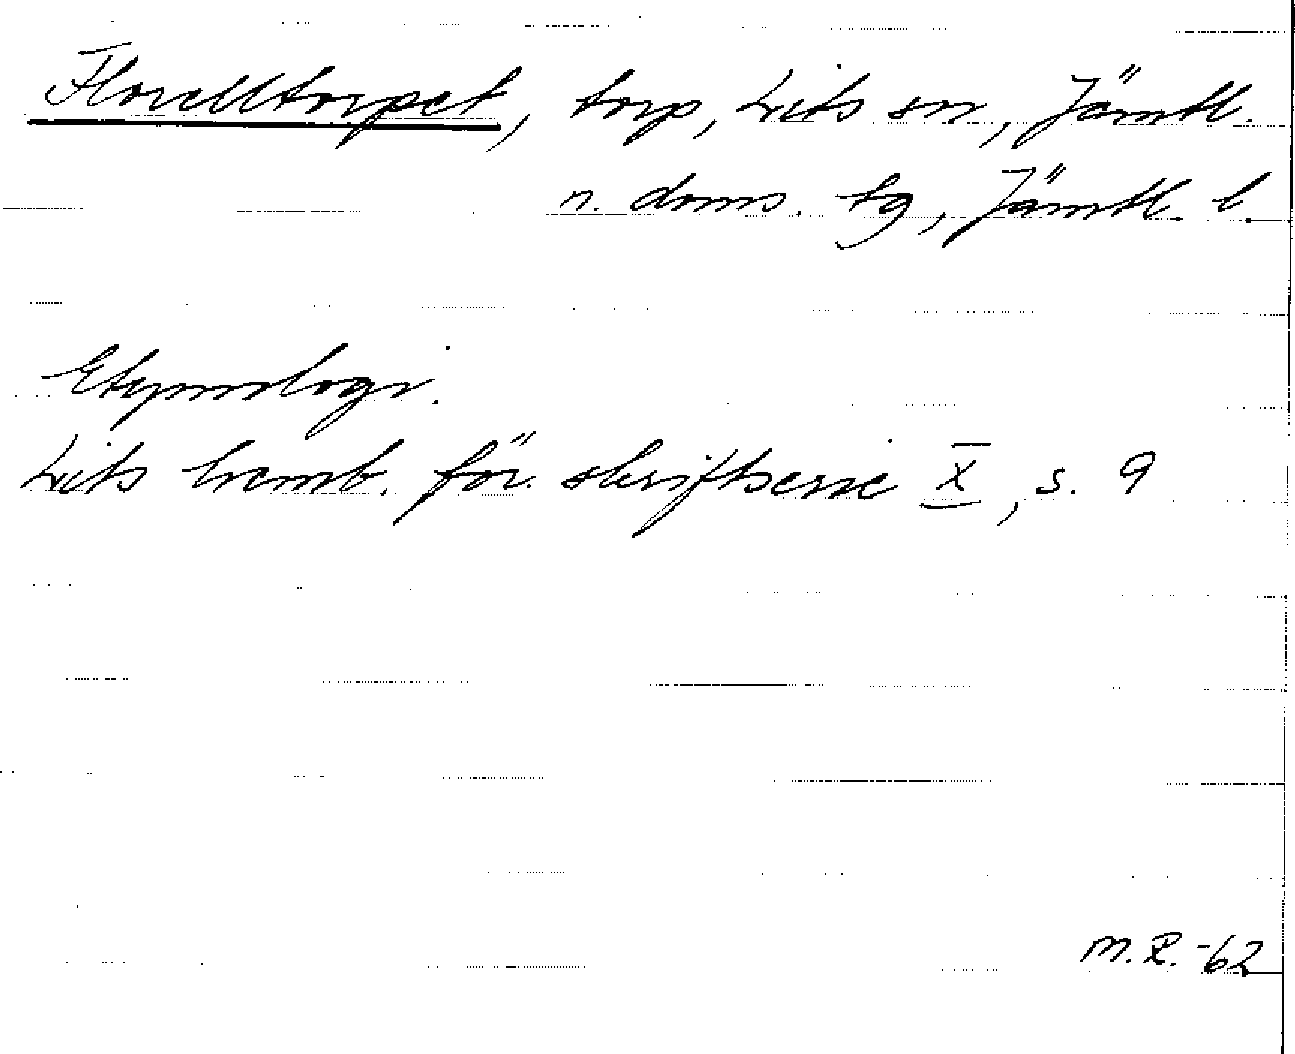 Florelltorpet, torp, Lits sn, Jämtl.
n. doms. tg, Jämtl. l.
Etymologi.
Lits hemb. för. skriftserie X, s. 9
M.R.-62